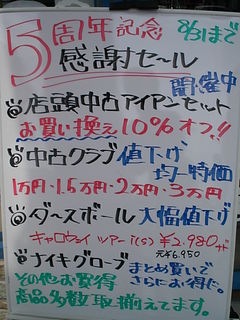 5周年記念 8/31まで
感謝セール
開催中
店頭中古アイアンセット
お買い換え10%オフ!!
中古クラブ値下げ
均一特価
1万円・1.5万円・2万円・3万円
ダースボール大幅値下げ
キャロウェイ ツアーi(s) ¥2.980
元¥6.950
ナイキグローブ まとめ買いで
さらにお得に。
その他お買得
商品多数取揃えてます。